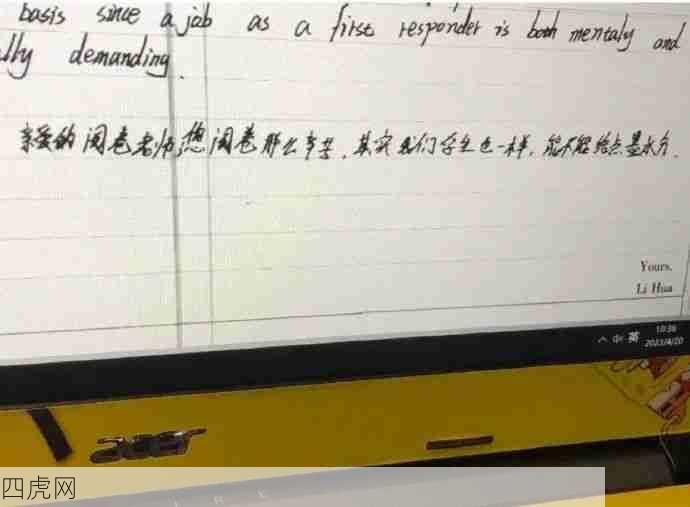 basis since a job as a first responder is both mentaly and
lly demanding.
亲爱的阅卷老师,您阅卷那么辛苦,其实我们学生也一样,能不能给点墨水分.
Yours,
Li Hua
中 英
10:36
2023/4/20
acer
四虎网